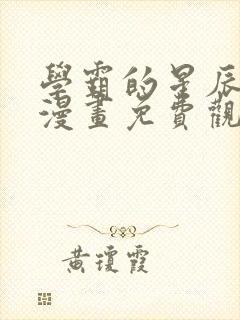 學霸的星辰
漫畫免費觀
黃瓊霞